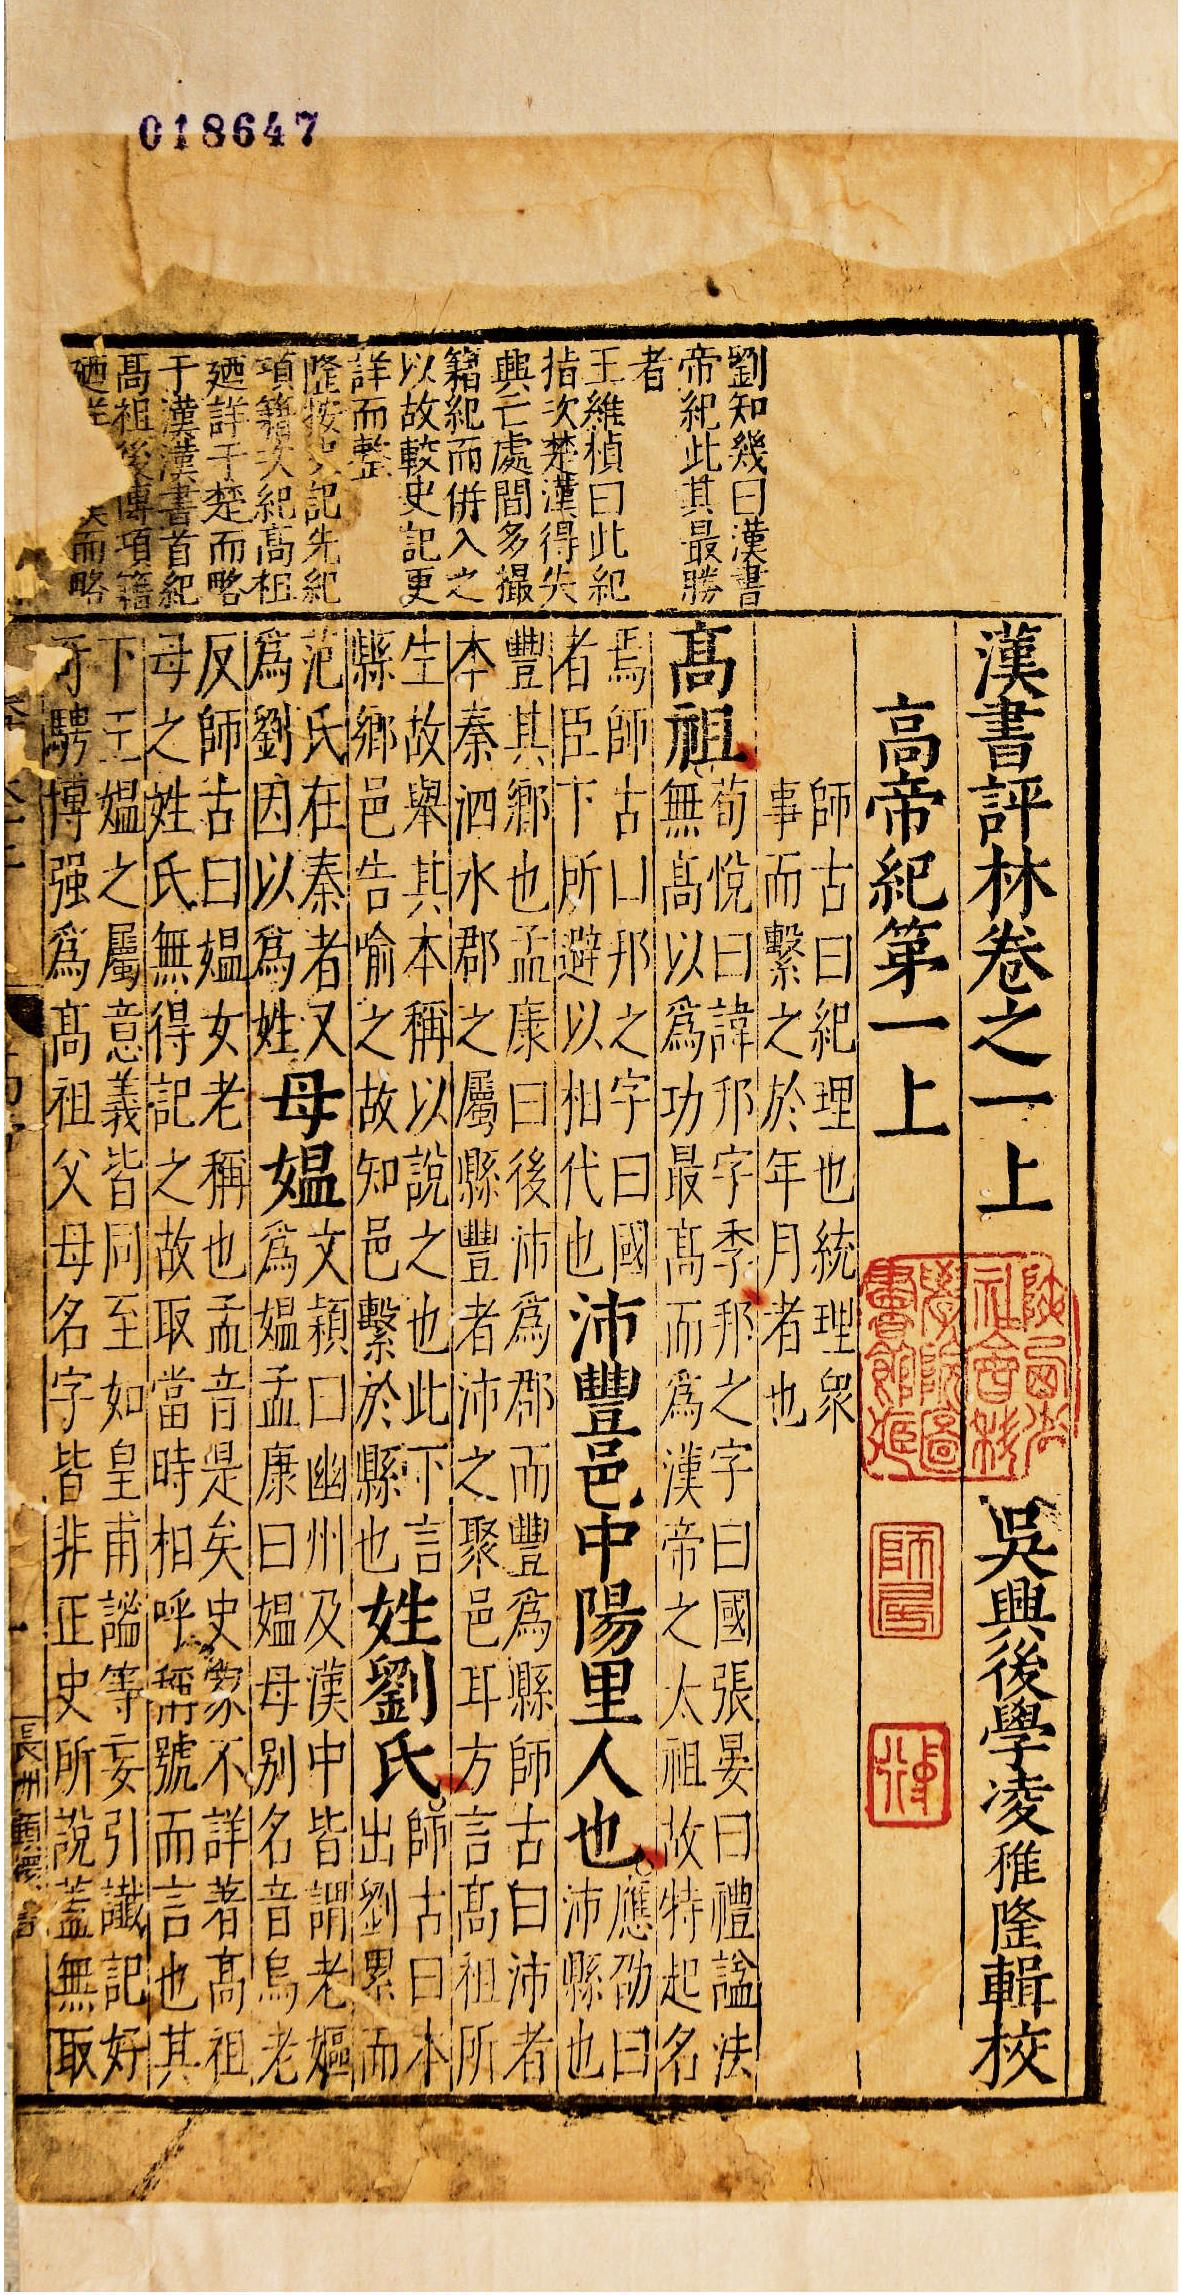 018647
劉知幾曰漢書
帝紀此其最勝
者
王維楨曰此紀
指次楚漢得失
興亡處間多撮
籍紀而併入之
以故較史記更
詳而整
隆按史記先紀
項籍次紀高祖
廼詳于楚而略
于漢漢書首紀
髙祖後傳項籍
而略
漢書評林卷之一上
吳興後學凌稚隆輯校
高帝紀第一上
師古曰紀理也統理衆
事而繫之於年月者也
髙祖
荀悅曰諱邦字季邦之字曰國張晏曰禮謚法
無髙以爲功最髙而爲漢帝之太祖故特起名
焉師古曰邦之字曰國
者臣下所避以相代也
沛豐邑中陽里人也
應劭曰
沛縣也
豐其鄉也孟康曰後沛爲郡而豐爲縣師古曰沛者
本秦泗水郡之屬縣豐者沛之聚邑耳方言髙祖所
生故舉其本稱以說之也此下言
縣鄉邑告喻之故知邑繫於縣也
姓劉氏
師古曰本
出劉累而
范氏在秦者又
爲劉因以爲姓
母媪
文穎曰幽州及漢中皆謂老嫗
爲媪孟康曰媪母别名音烏老
反師古曰媪女老稱也孟音是矣史家不詳著髙祖
母之姓氏無得記之故取當時相呼稱號而言也其
下王媪之屬意義皆同至如皇甫謐等妄引讖記好
奇騁博强爲髙祖父母名字皆非正史所說蓋無取
陝西省
社會科
學院圖
書館藏